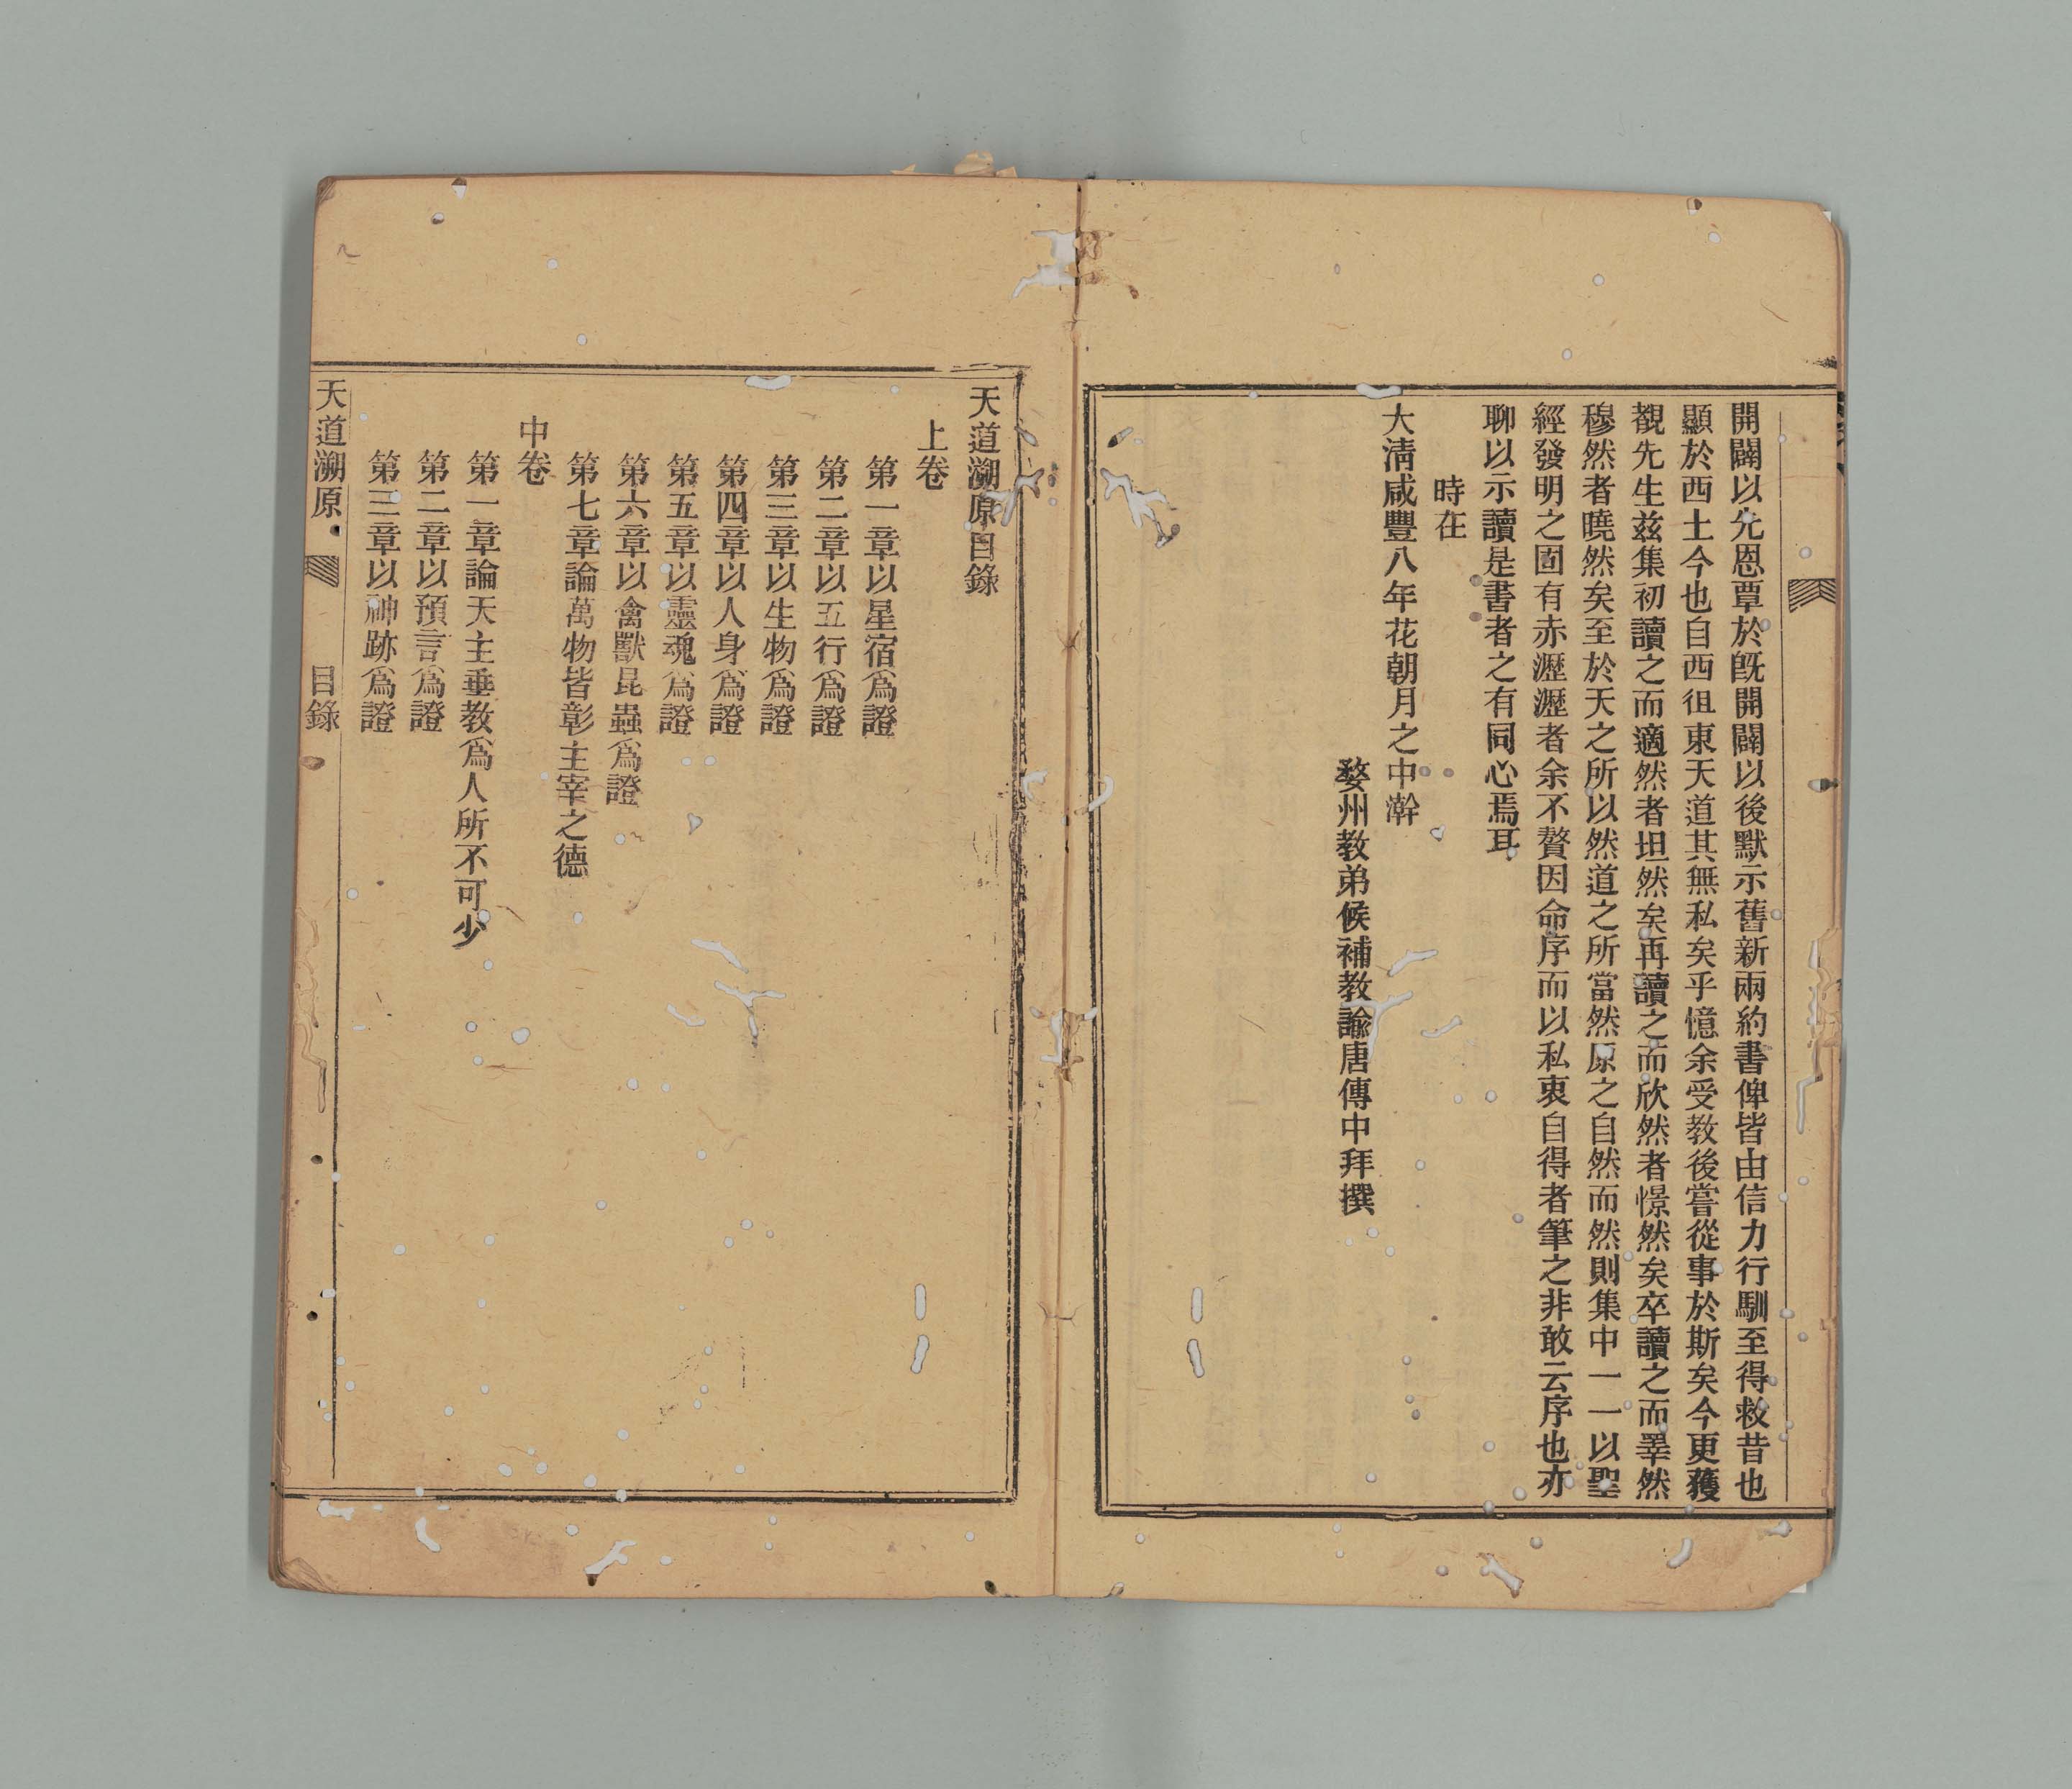 開闢以允恩覃於旣開闢以後默示舊新兩約書俾皆由信力行馴至得救昔也
顯於西土今也自西徂東天道其無私矣乎憶余受教後嘗從事於斯矣今更獲
觀先生兹集初讀之而適然者坦然矣再讀之而欣然者憬然矣卒讀之而睪然
穆然者曉然矣至於天之所以然道之所當然原之自然而然則集中一一以聖
經發明之固有赤瀝瀝者余不贅因命序而以私衷自得者筆之非敢云序也亦
聊以示讀是書者之有同心焉耳
時在
大淸咸豐八年花朝月之中澣
婺州教弟候補教諭唐傳中拜撰
天道溯原目錄
上卷
第一章以星宿爲證
第二章以五行爲證
第三章以生物爲證
第四章以人身爲證
第五章以靈魂爲證
第六章以禽獸昆蟲爲證
第七章論萬物皆彰主宰之德
中卷
第一章論天主垂教爲人所不可少
第二章以預言爲證
第三章以神跡爲證
天道溯原 目錄